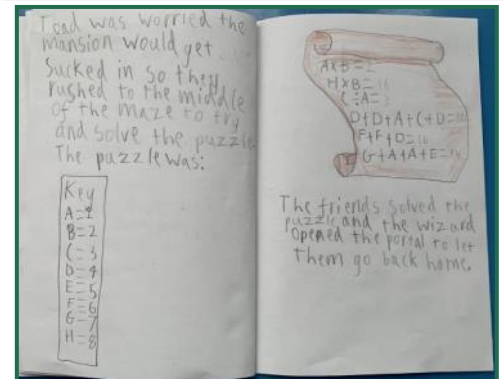 Toad was worried the
mansion would get
Sucked in so they
rushed to the middle
of the maze to try
and solve the puzzle.
The puzzle was:
Key
A=1
B=2
C=3
D=4
E=5
F=6
G=7
H=8
A×B=2
H×B=16
C÷A=3
D+D+A+C+D=
F+F+D=16
G+A+A+E=14
The friends solved the
puzzle and the wizard
opened the portal to let
them go back home.